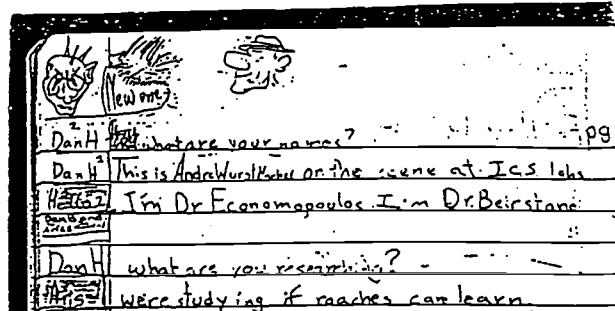 New one
Dan H what are your names? pg
Dan H This is Andre on the scene at I.C.S. labs
I'm Dr Economopoulos I'm Dr. Beirstone
Dan H what are you researching?
Aris we're studying if roaches can learn